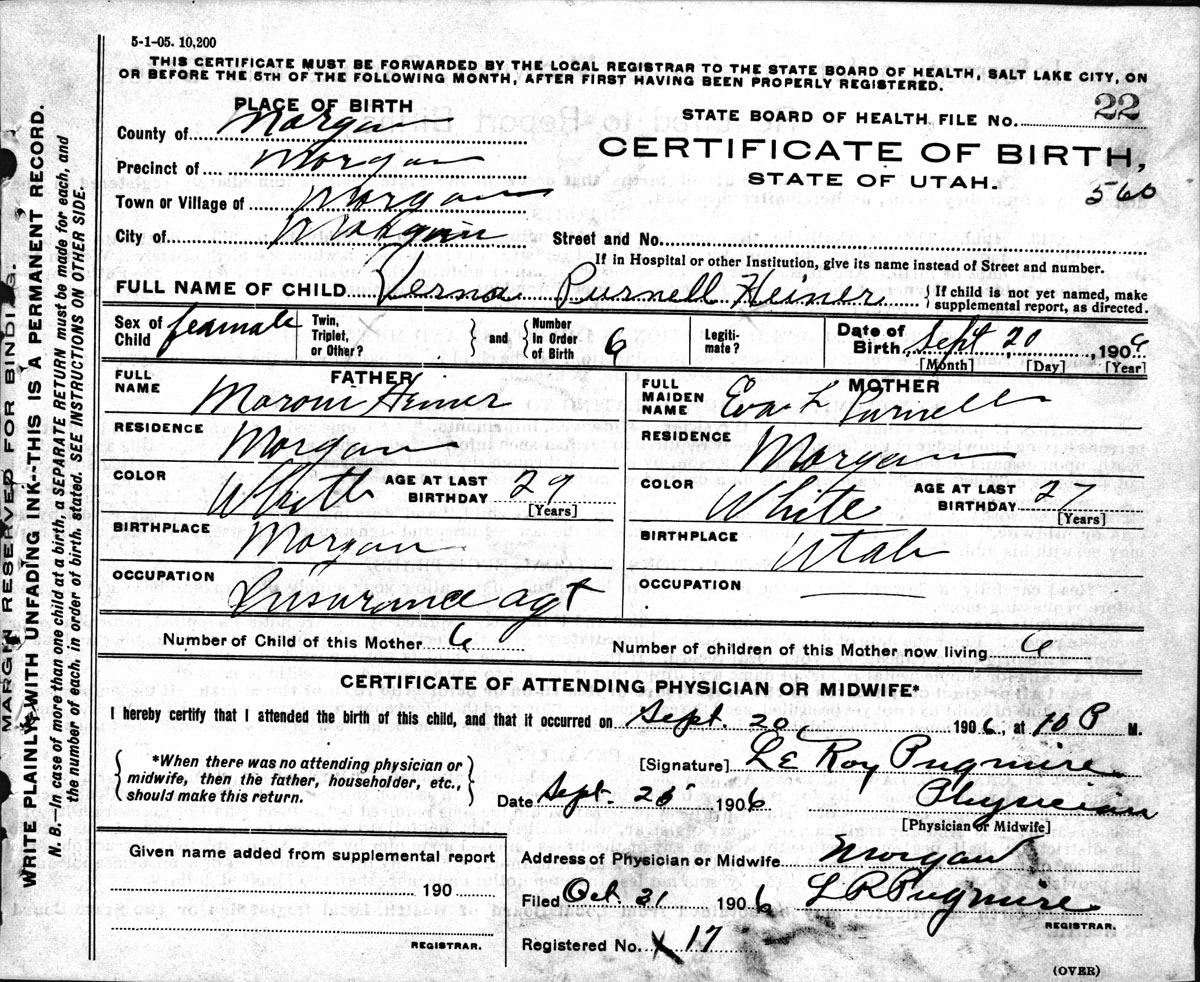 5-1-05. 10,200
THIS CERTIFICATE MUST BE FORWARDED BY THE LOCAL REGISTRAR TO THE STATE BOARD OF HEALTH, SALT LAKE CITY, ON
OR BEFORE THE 5TH OF THE FOLLOWING MONTH, AFTER FIRST HAVING BEEN PROPERLY REGISTERED.
PLACE OF BIRTH
County of Morgan
Precinct of Morgan
Town or Village of Morgan
City of Morgan
STATE BOARD OF HEALTH FILE No. 22
CERTIFICATE OF BIRTH,
STATE OF UTAH.
560
Street and No.
If in Hospital or other Institution, give its name instead of Street and number.
FULL NAME OF CHILD Verna Purnell Heiner {If child is not yet named, make
supplemental report, as directed.
Sex of Child feamale Twin, Triplet, or Other? } and { Number In Order of Birth 6 Legiti-mate? Date of Birth Sept 20, 1906
[Month] [Day] [Year]
FATHER
FULL NAME Maroni Heiner
RESIDENCE Morgan
COLOR White AGE AT LAST BIRTHDAY 29
[Years]
BIRTHPLACE Morgan
OCCUPATION Insurance agt
MOTHER
FULL MAIDEN NAME Eva L Purnell
RESIDENCE Morgan
COLOR White AGE AT LAST BIRTHDAY 27
[Years]
BIRTHPLACE Utah
OCCUPATION
Number of Child of this Mother 6 Number of children of this Mother now living 6
CERTIFICATE OF ATTENDING PHYSICIAN OR MIDWIFE*
I hereby certify that I attended the birth of this child, and that it occurred on Sept. 20 1906, at 10 P M.
*When there was no attending physician or
midwife, then the father, householder, etc.,
should make this return.
[Signature] Le Roy Pugmire
Date Sept. 25 1906 Physician
[Physician or Midwife]
Given name added from supplemental report
190
REGISTRAR.
Address of Physician or Midwife Morgan
Filed Oct. 31 1906 L R Pugmire
REGISTRAR.
Registered No. X 17
(OVER)
MARGIN RESERVED FOR BINDING.
WRITE PLAINLY WITH UNFADING INK--THIS IS A PERMANENT RECORD.
N. B.—In case of more than one child at a birth, a SEPARATE RETURN must be made for each, and
the number of each, in order of birth, stated. SEE INSTRUCTIONS ON OTHER SIDE.